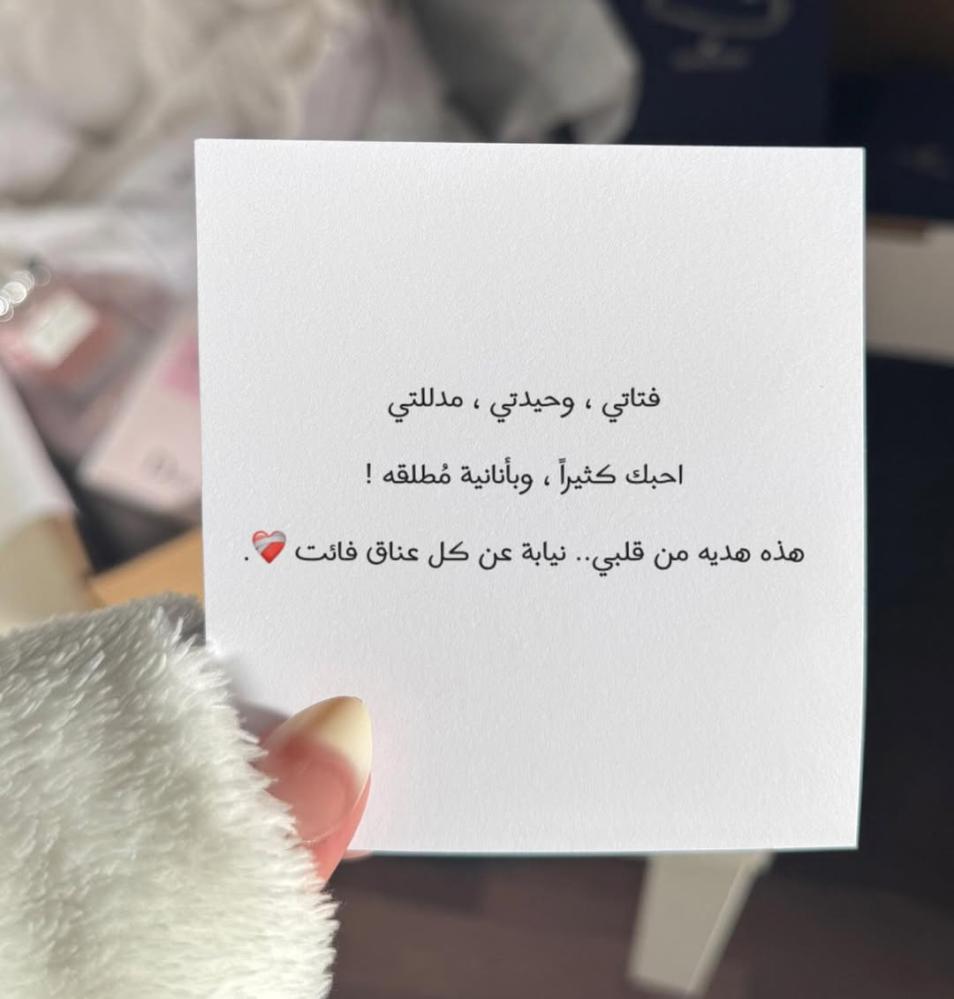 فتاتي ، وحيدتي ، مدللتي
احبك كثيراً ، وبأنانية مُطلقه !
هذه هديه من قلبي.. نيابة عن كل عناق فائت ❤️‍🩹.